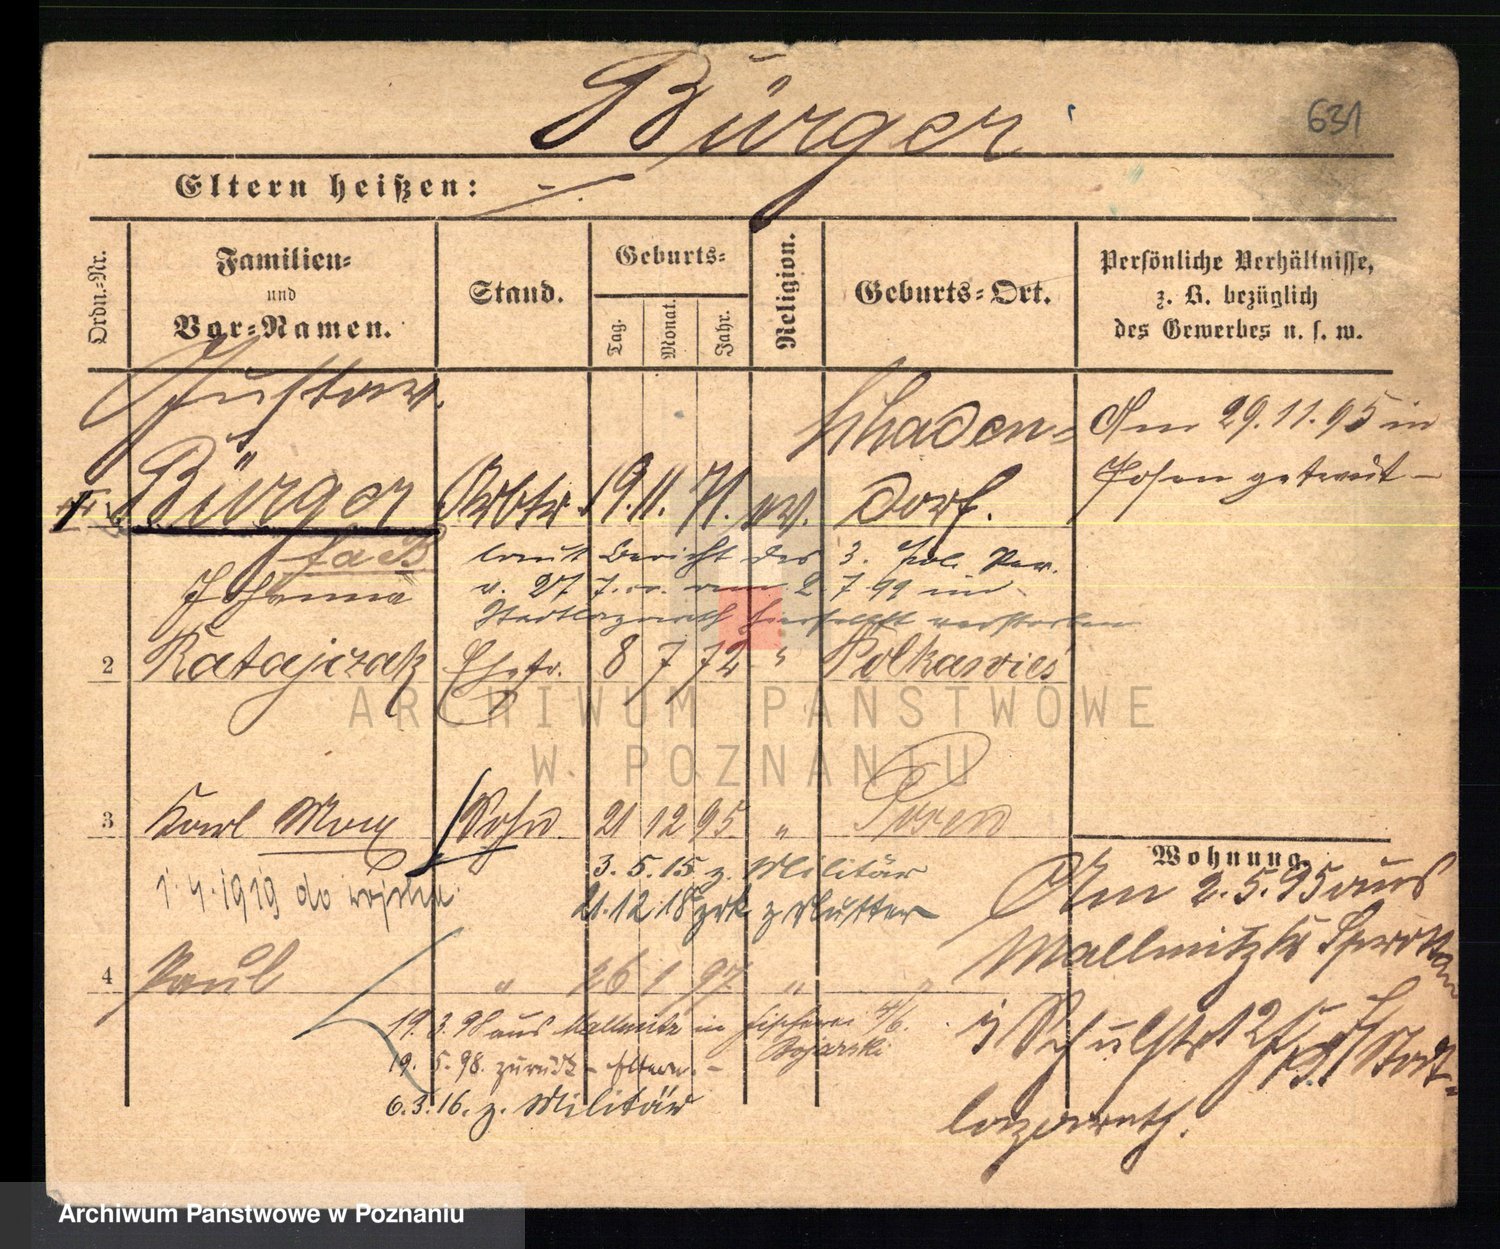 Bürger
631
Eltern heißen: -/-
Ordn.-Nr.
Familien- und Vor-Namen.
Stand.
Geburts-
Tag.
Monat.
Jahr.
Religion.
Geburts-Ort.
Persönliche Verhältnisse,
z. B. bezüglich
des Gewerbes u. s. w.
Gustav
Bürger Arbtr. 19. 11. 71. ev.
dorf.
Am 29.11.95 in
Posen getraut
laut Bericht des 3. Pol. Rev.
v. 27 7. 2. 7 99 im
Stadtlazareth hierselbst verstorben
Johanna
2 Ratajczak Ehefr. 8 7 72 "
3 Karl Max Sohn. 21 12 95. " Posen
3. 5. 15. z. Militär
1. 4. 1919 do wojska
21. 12 18 zrk z Mutter
4 Paul " 26 1 97. " "
19. 3. 98 aus Mallmitz in
Bojarski
19. 5. 98. zurück - Eltern. -
6. 3. 16. z. Militär
Wohnung.
Am 2. 5. 95 aus
Mallmitz Kr Sprottau
Schulstr 12
Stadt-
lazareth.
ARCHIWUM PAŃSTWOWE
W POZNANIU
Archiwum Państwowe w Poznaniu